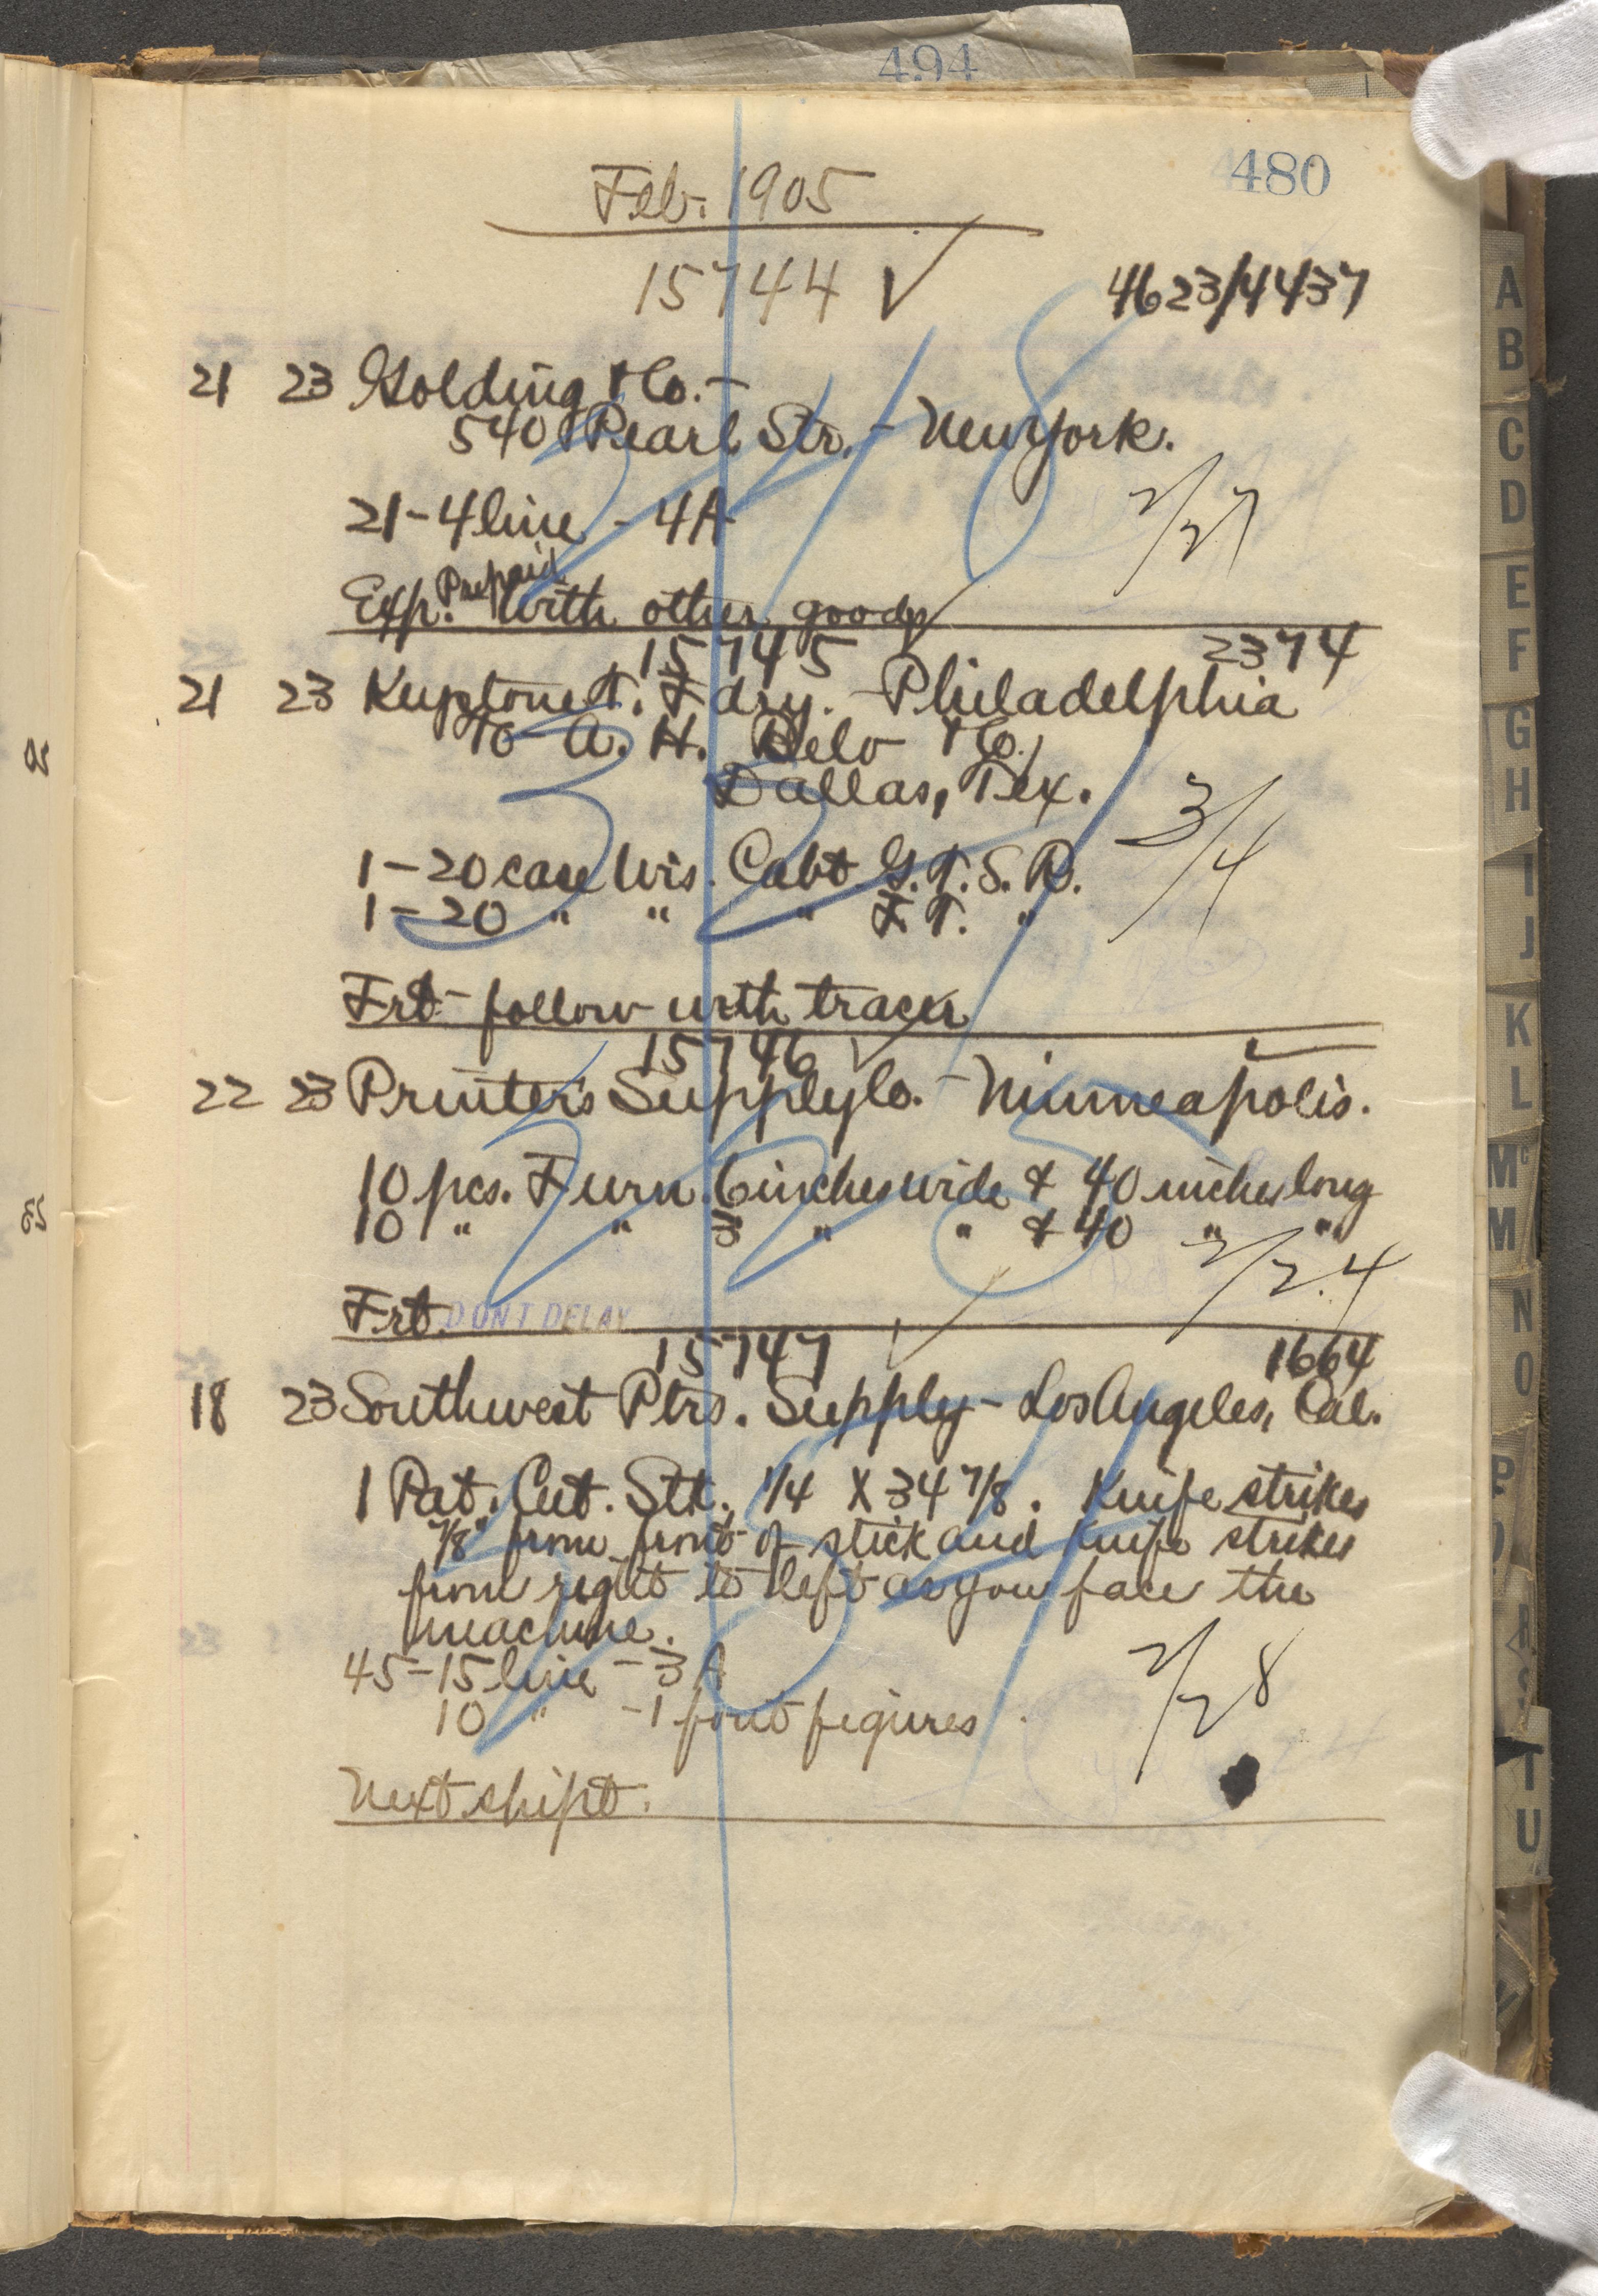 494
480
Feb. 1905
15744 ✓ 4623/4437
21 23 Golding & Co. -
540 Pearl Str. - New York.
21 - 4 line - 4A
2/27
Exp. Prepaid with other goods
15745 2374
21 23 Keystone T. Fdry. - Philadelphia
To A. H. Belo & Co.,
Dallas, Tex.
3/4
1 - 20 case Wis. Cabt. G. T. S. R.
1 - 20 " " " F. T. "
Frt - follow with tracer
15746 ✓
22 23 Printer's Supply Co. - Minneapolis.
10 pcs. Furn. 6 inches wide & 40 inches long
10 " " 3 " " & 40 " "
2/24
Frt. DON'T DELAY
15747 1664
18 23 Southwest Ptrs. Supply - Los Angeles, Cal.
1 Pat. Cut. Stk. 1/4 X 34 7/8. Knife strikes
7/8" from front of stick and knife strikes
from right to left as you face the
machine.
45 - 15 line - 3A
10 " - 1 font figures
2/28
Next shipt.
A
B
C
D
E
F
G
H
I
J
K
L
Mc
M
N
O
P
R
T
U